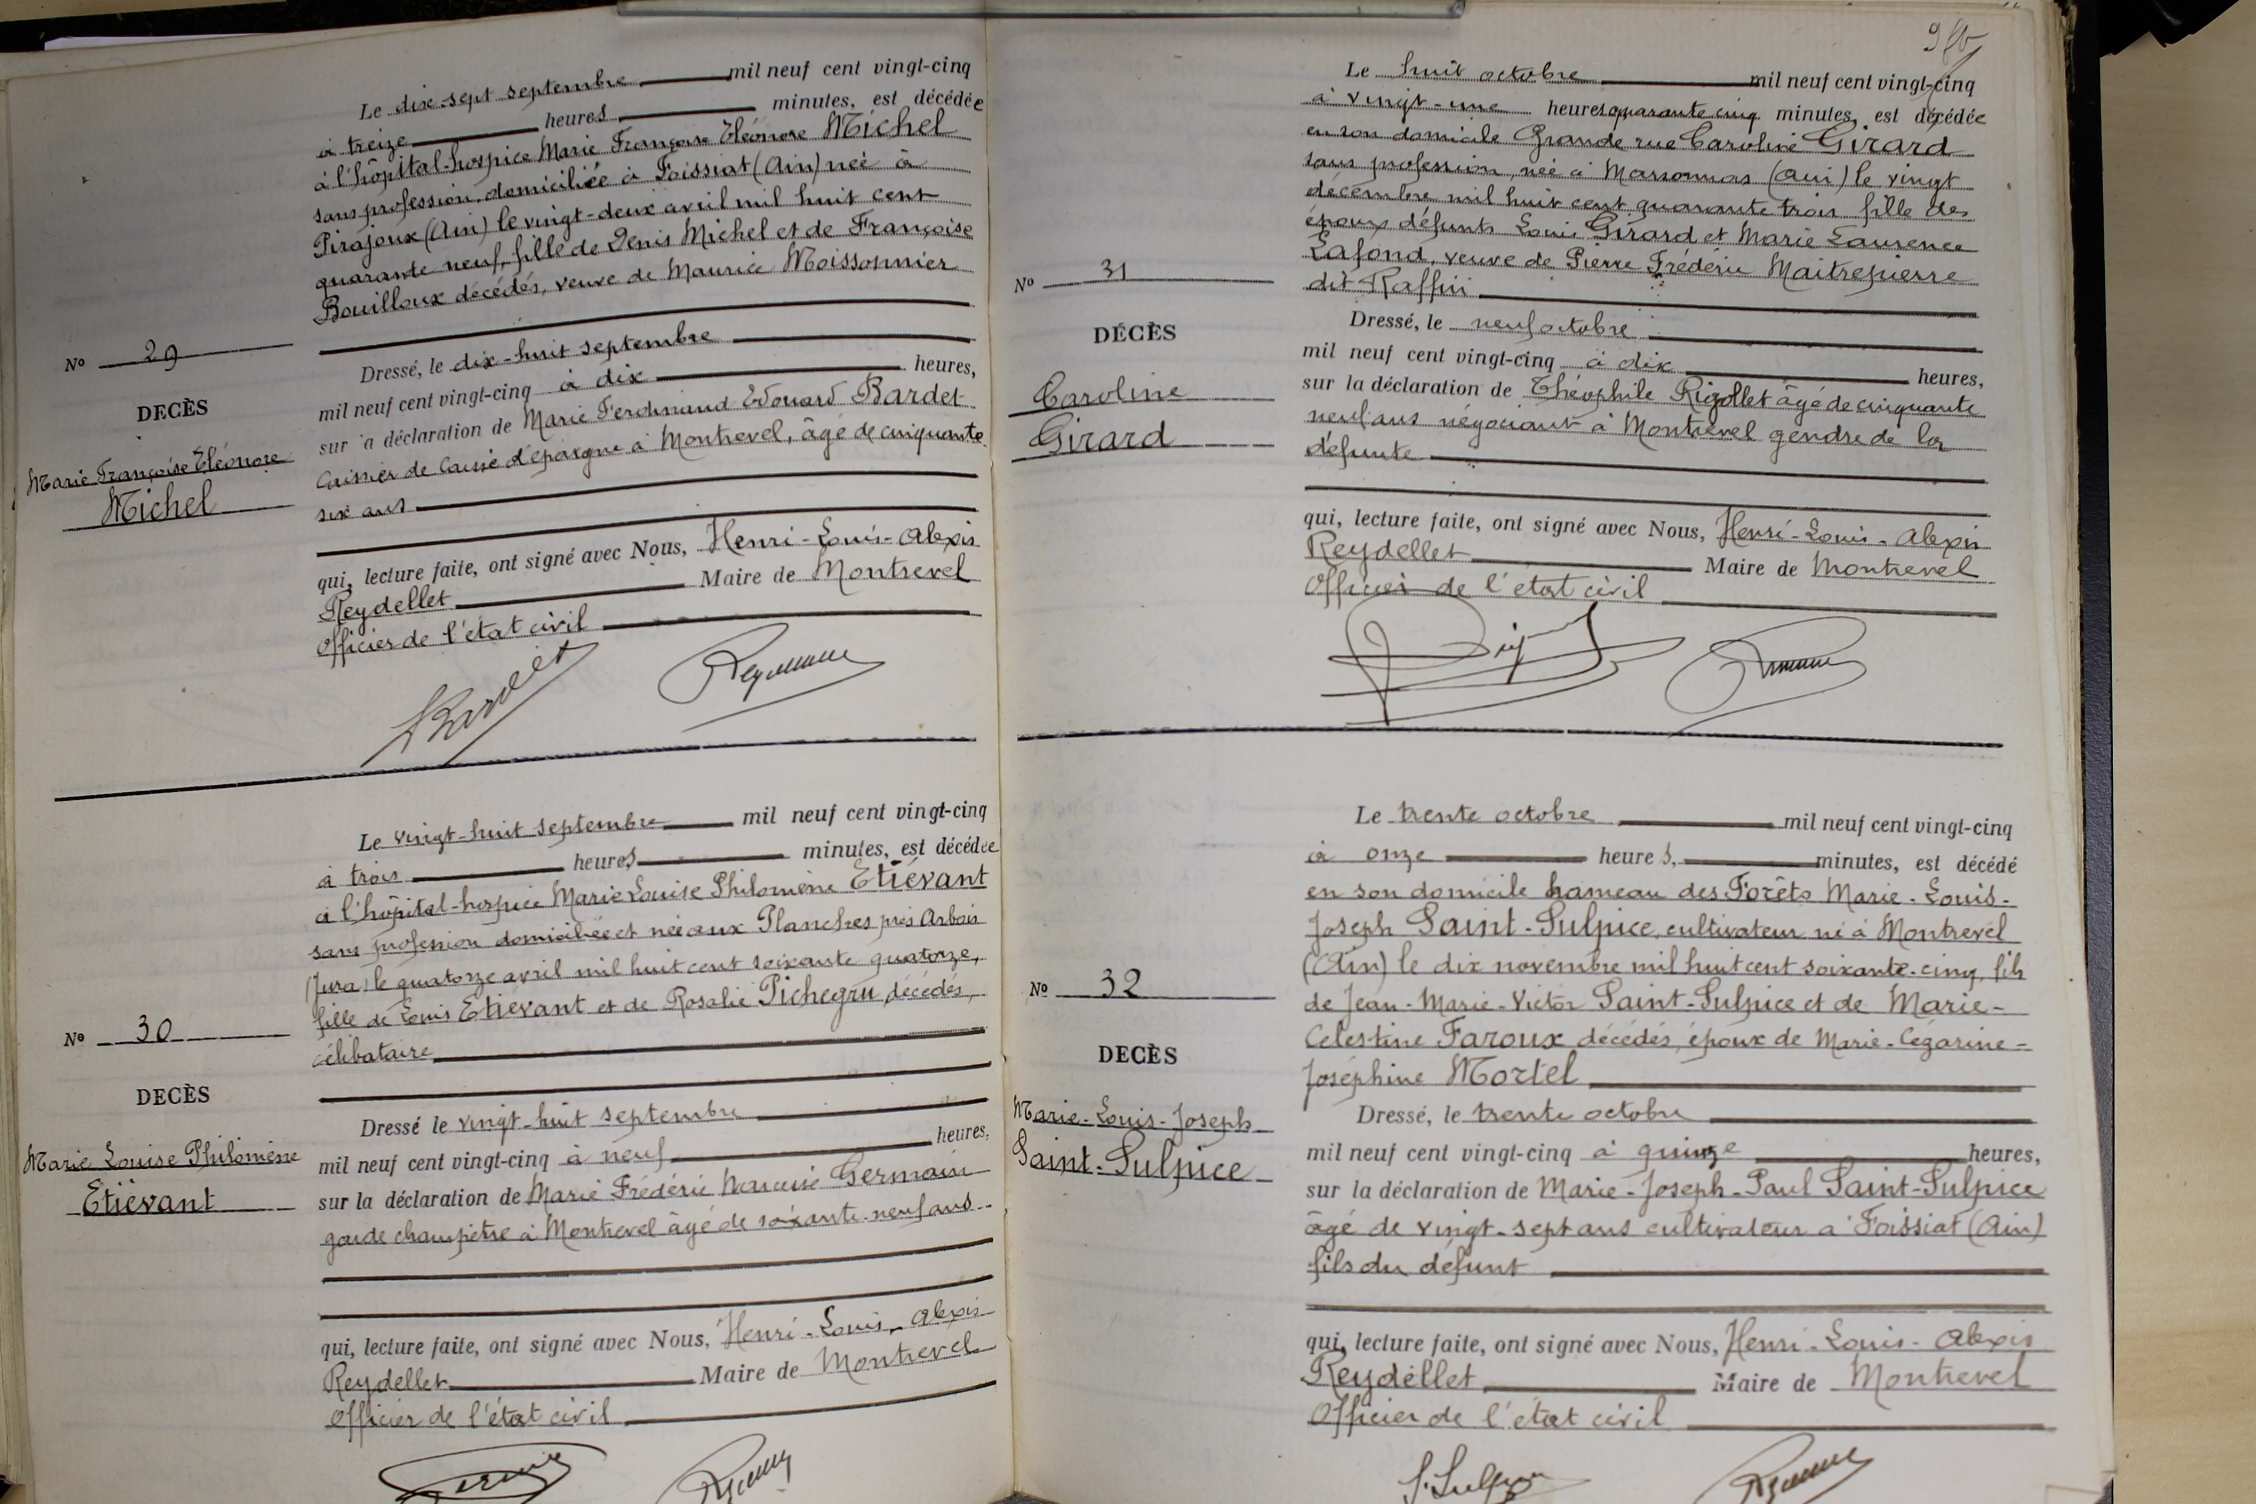 Le dix-sept septembre mil neuf cent vingt-cinq
à treize heures minutes, est décédée
à l'hôpital-hospice Marie Françoise Eléonore Michel
sans profession, domiciliée à Foissiat (Ain) née à
Pirajoux (Ain) le vingt-deux avril mil huit cent
quarante neuf, fille de Denis Michel et de Françoise
Bouilloux décédés, veuve de Maurice Moissonnier
No 29
DECÈS
Marie Françoise Eléonore
Michel
Dressé, le dix-huit septembre
mil neuf cent vingt-cinq à dix heures,
sur a déclaration de Marie Ferdinand Edouard Bardet
caissier de Caisse d'épargne à Montrevel, âgé de cinquante
six ans
qui, lecture faite, ont signé avec Nous, Henri-Louis-Alexis
Reydellet Maire de Montrevel
Officier de l'état civil
Bardet
Le vingt-huit septembre mil neuf cent vingt-cinq
à trois heures minutes, est décédée
à l'hôpital-hospice Marie Louise Philomène Etiévant
sans profession domiciliée et née aux Planches près Arbois
(Jura) le quatorze avril mil huit cent soixante quatorze,
fille de Louis Etiévant et de Rosalie Pichegru décédés,
célibataire
No 30
DECÈS
Marie Louise Philomène
Etiévant
Dressé le vingt-huit septembre
mil neuf cent vingt-cinq à neuf heures,
sur la déclaration de Marie Frédéric Narcisse Germain
garde champêtre à Montrevel âgé de soixante-neuf ans
qui, lecture faite, ont signé avec Nous, Henri-Louis-Alexis
Reydellet Maire de Montrevel
Officier de l'état civil
Le huit octobre mil neuf cent vingt-cinq
à vingt-une heures quarante cinq minutes, est décédée
en son domicile Grande rue Caroline Girard
sans profession, née à Marsonnas (Ain) le vingt
décembre mil huit cent quarante trois fille des
époux défunts Louis Girard et Marie Laurence
Lafond, veuve de Pierre Frédéric Maitrepierre
dit Raffin
No 31
DÉCÈS
Caroline
Girard
Dressé, le neuf octobre
mil neuf cent vingt-cinq à dix heures,
sur la déclaration de Théophile Rigollet âgé de cinquante
neuf ans négociant à Montrevel gendre de la
défunte
qui, lecture faite, ont signé avec Nous, Henri-Louis-Alexis
Reydellet Maire de Montrevel
Officier de l'état civil
Le trente octobre mil neuf cent vingt-cinq
à onze heures, minutes, est décédé
en son domicile hameau des Forêts Marie-Louis-
Joseph Saint-Sulpice, cultivateur né à Montrevel
(Ain) le dix novembre mil huit cent soixante-cinq, fils
de Jean-Marie-Victor Saint-Sulpice et de Marie-
Celestine Faroux décédés, époux de Marie-Cégarine-
Joséphine Mortel
No 32
DECÈS
Marie-Louis-Joseph
Saint-Sulpice
Dressé, le trente octobre
mil neuf cent vingt-cinq à quinze heures,
sur la déclaration de Marie-Joseph-Paul Saint-Sulpice
âgé de vingt-sept ans cultivateur à Foissiat (Ain)
fils du défunt
qui, lecture faite, ont signé avec Nous, Henri-Louis-Alexis
Reydellet Maire de Montrevel
Officier de l'état civil